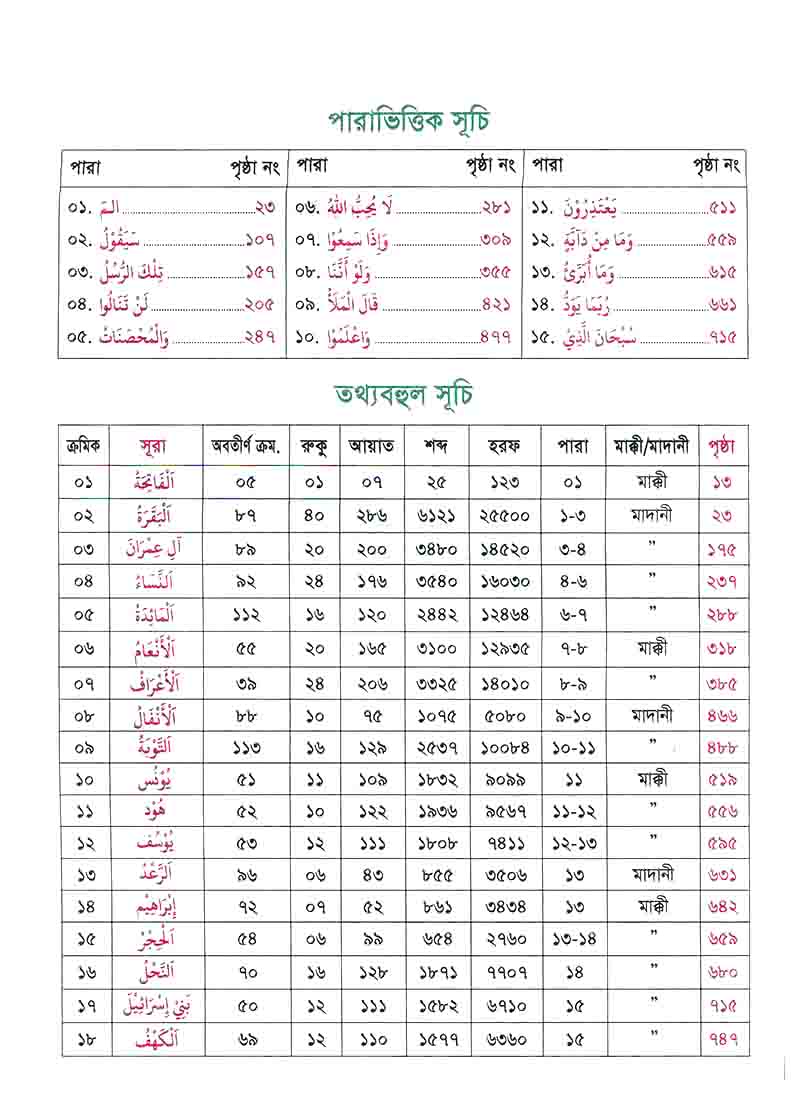 পারাভিত্তিক সূচি
পারা পৃষ্ঠা নং পারা পৃষ্ঠা নং পারা পৃষ্ঠা নং
০১. الـمَ ২৩ ০৬. لَا يُحِبُّ اللهُ ২৮১ ১১. يَعْتَذِرُوْنَ ৫১১
০২. سَيَقُوْلُ ১০৭ ০৭. وَإِذَا سَمِعُوْا ৩০৯ ১২. وَمَا مِنْ دَآبَّةٍ ৫৫৯
০৩. تِلْكَ الرُّسُلُ ১৫৭ ০৮. وَلَوْ أَنَّنَا ৩৫৫ ১৩. وَمَا أُبَرِّئُ ৬১৫
০৪. لَنْ تَنَالُوا ২০৫ ০৯. قَالَ الْمَلَأُ ৪২১ ১৪. رُبَمَا يَوَدُّ ৬৬১
০৫. وَالْمُحْصَنَاتُ ২৪৭ ১০. وَاعْلَمُوْا ৪৭৭ ১৫. سُبْحَانَ الَّذِيْ ৭১৫
তথ্যবহুল সূচি
ক্রমিক সূরা অবতীর্ণ ক্রম. রুকু আয়াত শব্দ হরফ পারা মাক্কী/মাদানী পৃষ্ঠা
০১ اَلْفَاتِحَةُ ০৫ ০১ ০৭ ২৫ ১২৩ ০১ মাক্কী ১৩
০২ اَلْبَقَرَةُ ৮৭ ৪০ ২৮৬ ৬১২১ ২৫৫০০ ১-৩ মাদানী ২৩
০৩ آلِ عِمْرَانَ ৮৯ ২০ ২০০ ৩৪৮০ ১৪৫২০ ৩-৪ ” ১৭৫
০৪ اَلنَّسَاءُ ৯২ ২৪ ১৭৬ ৩৫৪০ ১৬০৩০ ৪-৬ ” ২৩৭
০৫ اَلْمَائِدَةُ ১১২ ১৬ ১২০ ২৪৪২ ১২৪৬৪ ৬-৭ ” ২৮৮
০৬ اَلْأَنْعَامُ ৫৫ ২০ ১৬৫ ৩১০০ ১২৯৩৫ ৭-৮ মাক্কী ৩১৮
০৭ اَلْأَعْرَافُ ৩৯ ২৪ ২০৬ ৩৩২৫ ১৪০১০ ৮-৯ ” ৩৮৫
০৮ اَلْأَنْفَالُ ৮৮ ১০ ৭৫ ১০৭৫ ৫০৮০ ৯-১০ মাদানী ৪৬৬
০৯ اَلتَّوْبَةُ ১১৩ ১৬ ১২৯ ২৫৩৭ ১০০৮৪ ১০-১১ ” ৪৮৮
১০ يُوْنُس ৫১ ১১ ১০৯ ১৮৩২ ৯০৯৯ ১১ মাক্কী ৫১৯
১১ هُوْد ৫২ ১০ ১২২ ১৯৩৬ ৯৫৬৭ ১১-১২ ” ৫৫৬
১২ يُوْسُف ৫৩ ১২ ১১১ ১৮০৮ ৭৪১১ ১২-১৩ ” ৫৯৫
১৩ اَلرَّعْدُ ৯৬ ০৬ ৪৩ ৮৫৫ ৩৫০৬ ১৩ মাদানী ৬৩১
১৪ إِبْرَاهِيْم ৭২ ০৭ ৫২ ৮৬১ ৩৪৩৪ ১৩ মাক্কী ৬৪২
১৫ اَلْحِجْرُ ৫৪ ০৬ ৯৯ ৬৫৪ ২৭৬০ ১৩-১৪ ” ৬৫৯
১৬ اَلنَّحْلُ ৭০ ১৬ ১২৮ ১৮৭১ ৭৭০৭ ১৪ ” ৬৮০
১৭ بَنِيْ إِسْرَائِيْلَ ৫০ ১২ ১১১ ১৫৮২ ৬৭১০ ১৫ ” ৭১৫
১৮ اَلْكَهْفُ ৬৯ ১২ ১১০ ১৫৭৭ ৬৩৬০ ১৫ ” ৭৪৭